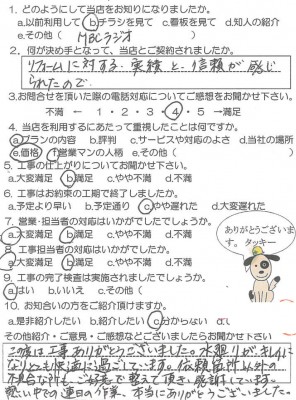 1. どのようにして当店をお知りになりましたか。
a.以前利用して b.チラシを見て c.看板を見て d.知人の紹介
e.その他( MBCラジオ )
2. 何が決め手となって、当店とご契約されましたか。
リフォームに対する実績と、信頼が感じ
られたので
3.お問合せを頂いた際の電話対応についてご感想をお聞かせ下さい。
不満 ← 1・2・3・4・5 →満足
4. 当店を利用するにあたって重視したことは何ですか。
a.プランの内容 b.評判 c.サービスや対応のよさ d.当社の場所
e.価格 f.営業マンの人柄 e.その他(
5. 工事の仕上がりについてお聞かせ下さい。
a.大変満足 b.満足 c.やや不満 d.不満
6. 工事はお約束の工期で終了しましたか。
a.予定より早い b.予定通り c.やや遅れた d.大変遅れた
7. 営業・担当者の対応はいかがでしたでしょうか。
a.大変満足 b.満足 c.やや不満 d.不満
8. 工事担当者の対応はいかがでしたか。
a.大変満足 b.満足 c.やや不満 d.不満
9. 工事の完了検査は実施されましたでしょうか。
a.はい b.いいえ c.その他(
10. お知り合いの方をご紹介頂けますか。
a.是非紹介したい b.紹介したい c.分からない
ありがとうございま
す。タッキー
その他紹介・ご意見・ご感想などございましたらお聞かせ下さい
この度は工事ありがとうございました。水廻りがキレイに
なりとても快適に過ごしています。依頼箇所以外の
不具合な所も、ご好意で整えて頂き、感謝しています。
熱い中での連日の作業、本当にありがとうございました。